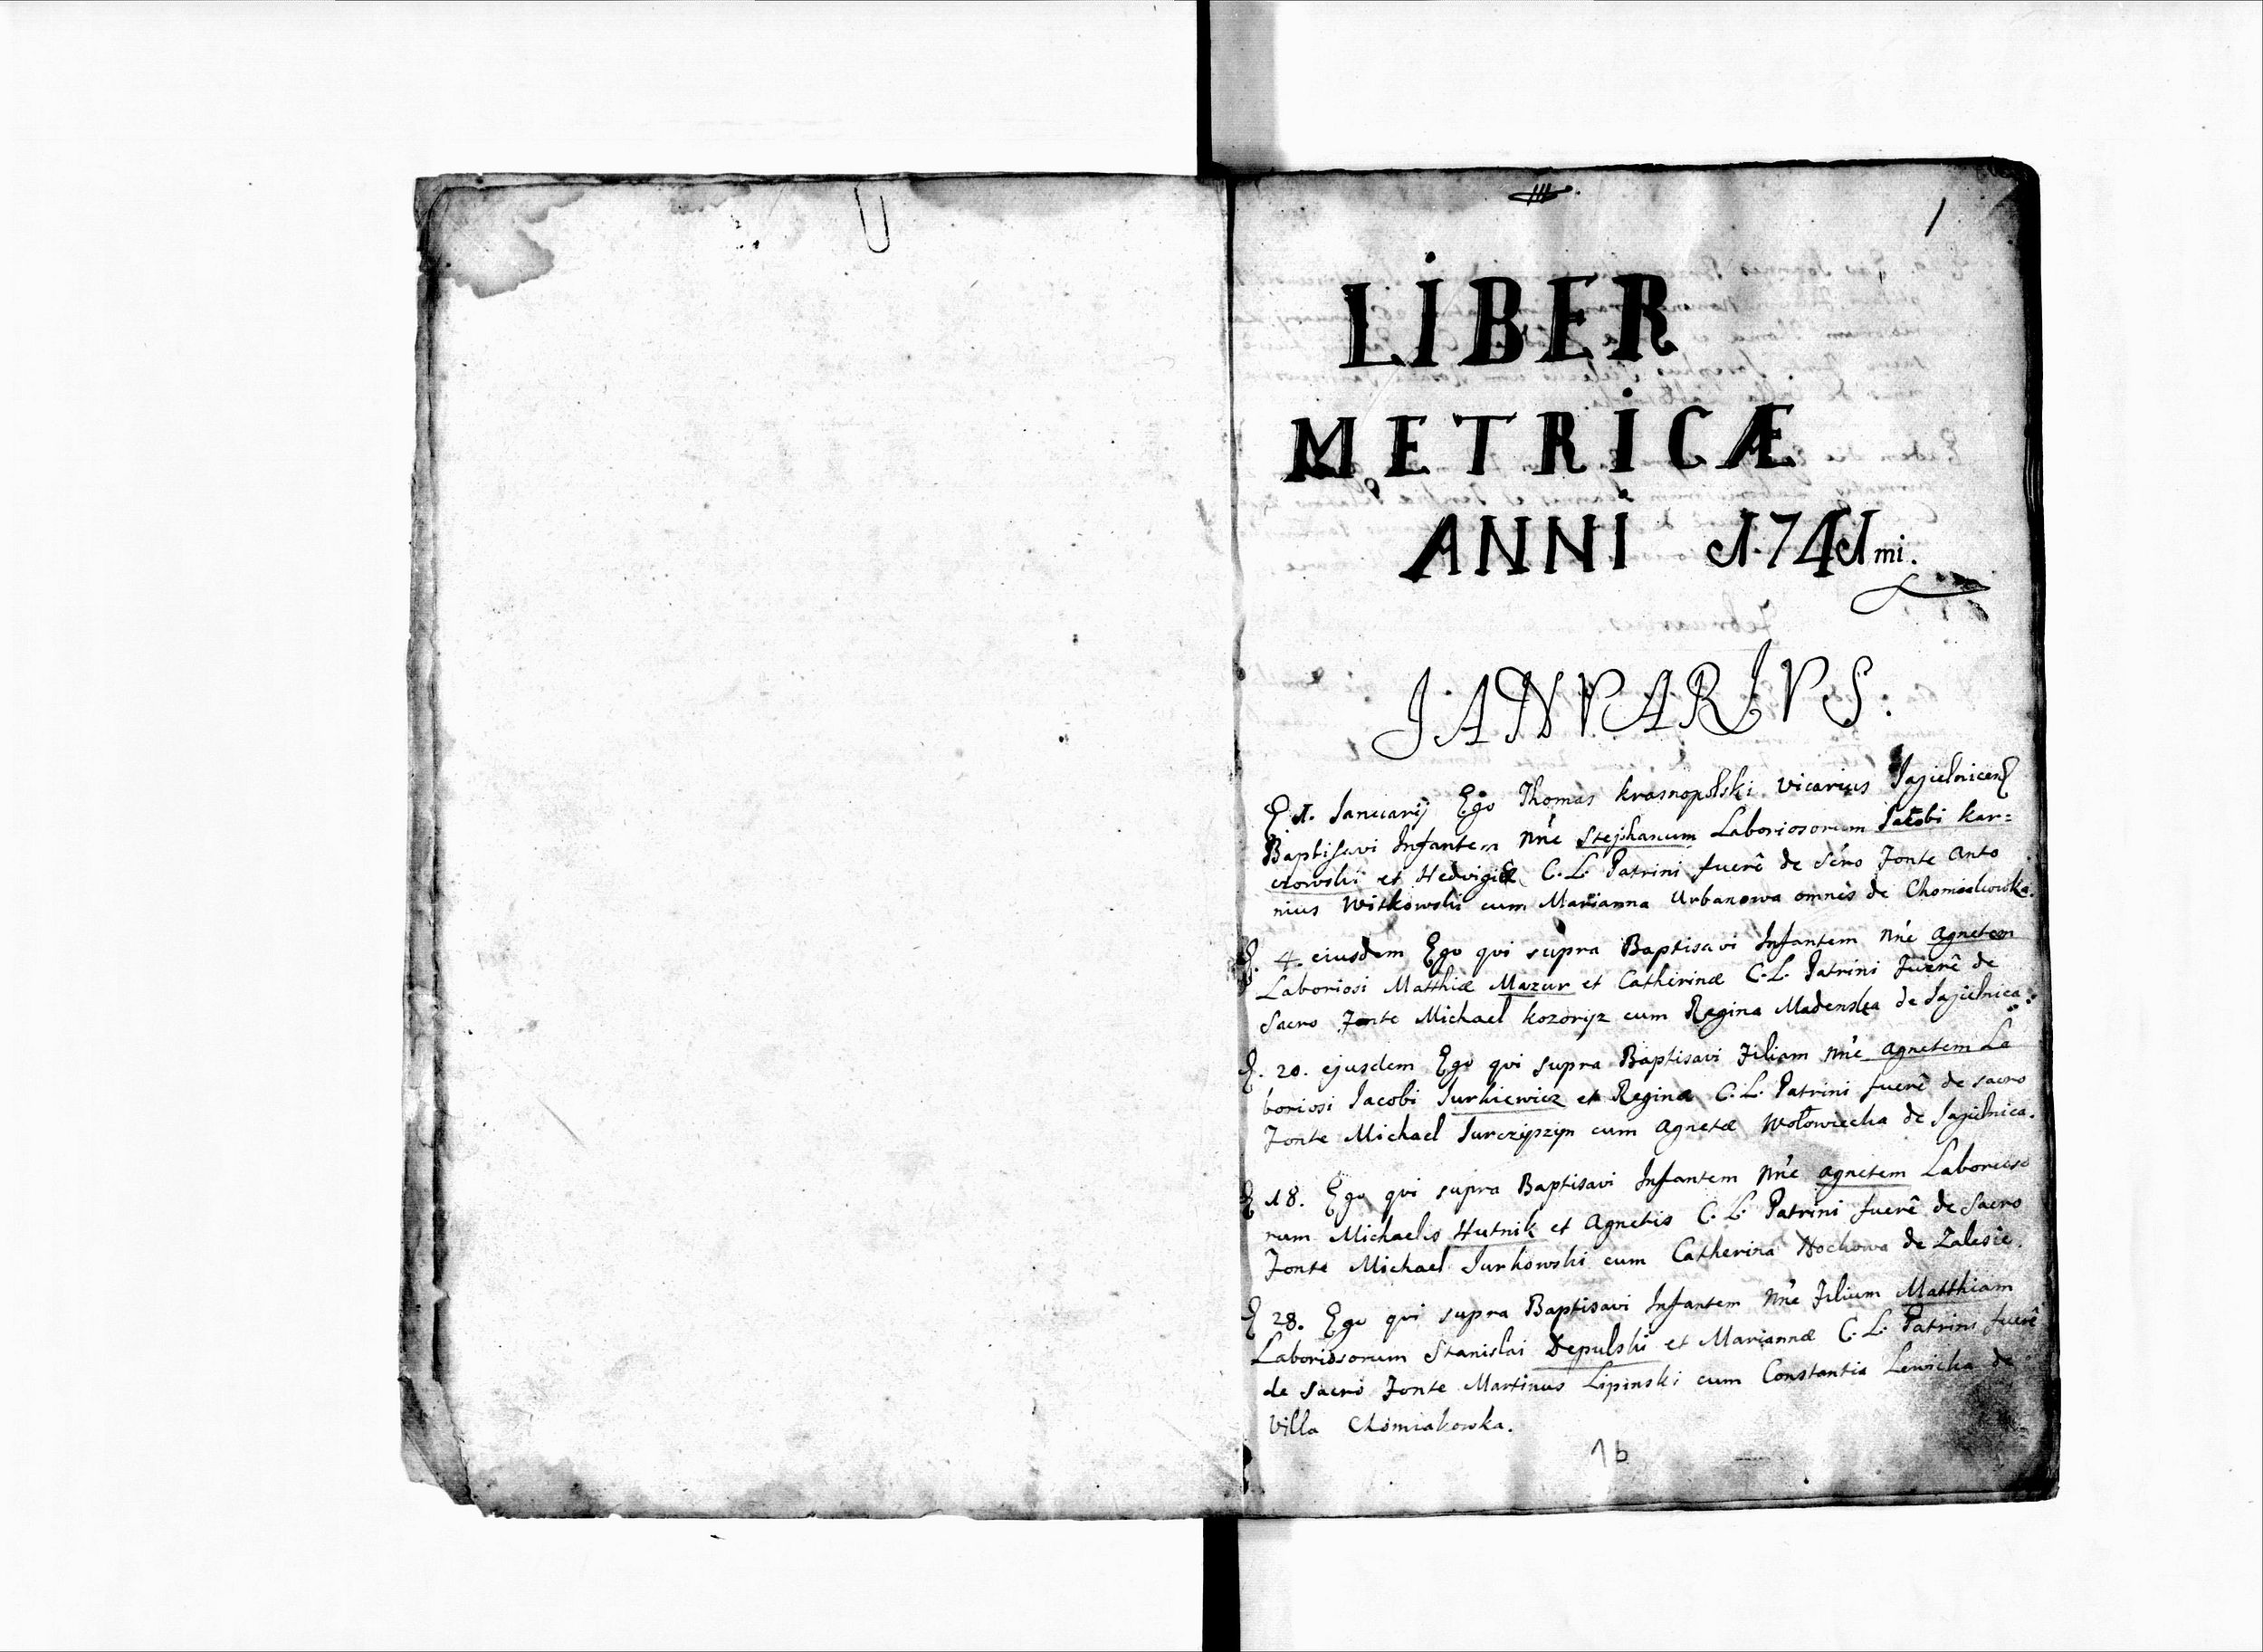 1
LIBER
METRICÆ
ANNI 1741mi.
JANVARIVS:
1. Januarij Ego Thomas Krasnopolski Vicarius Jagielnicens
Baptisavi Infantem Nñe Stephanum Laboriosorum Jacobi Kar=
czowski et Hedvigis C. L. Patrini fuerê de Sacro Fonte Anto
nius Witkowski cum Marianna Urbanowa omnes de Chomiakowka.
4. eiusdem Ego qui supra Baptisavi Infantem Nñe Agnetem
Laboriosi Matthiæ Mazur et Catherinæ C. L. Patrini Fuerê de
Sacro Fonte Michael Kozoryz cum Regina Madenska de Jagielnica.
20. ejusdem Ego qui supra Baptisavi Filiam Nñe Agnetem La
boriosi Jacobi Jurkiewicz et Reginæ C. L. Patrini fuerê de sacro
Fonte Michael Jurczyszyn cum Agnetæ Wołowiecka de Jagielnica.
18. Ego qui supra Baptisavi Infantem Nñe Agnetem Laborioso
rum Michaelis Hutnik et Agnetis C. L. Patrini fuerê de Sacro
Fonte Michael Jurkowski cum Catherina Hochowa de Zalesie.
28. Ego qui supra Baptisavi Infantem Nñe Filium Matthiam
Laboriosorum Stanislai Depulski et Mariannæ C. L. Patrini fuerê
de Sacro Fonte Martinus Lipinski cum Constantia Lewicka de
Villa Chomiakowka.
1b